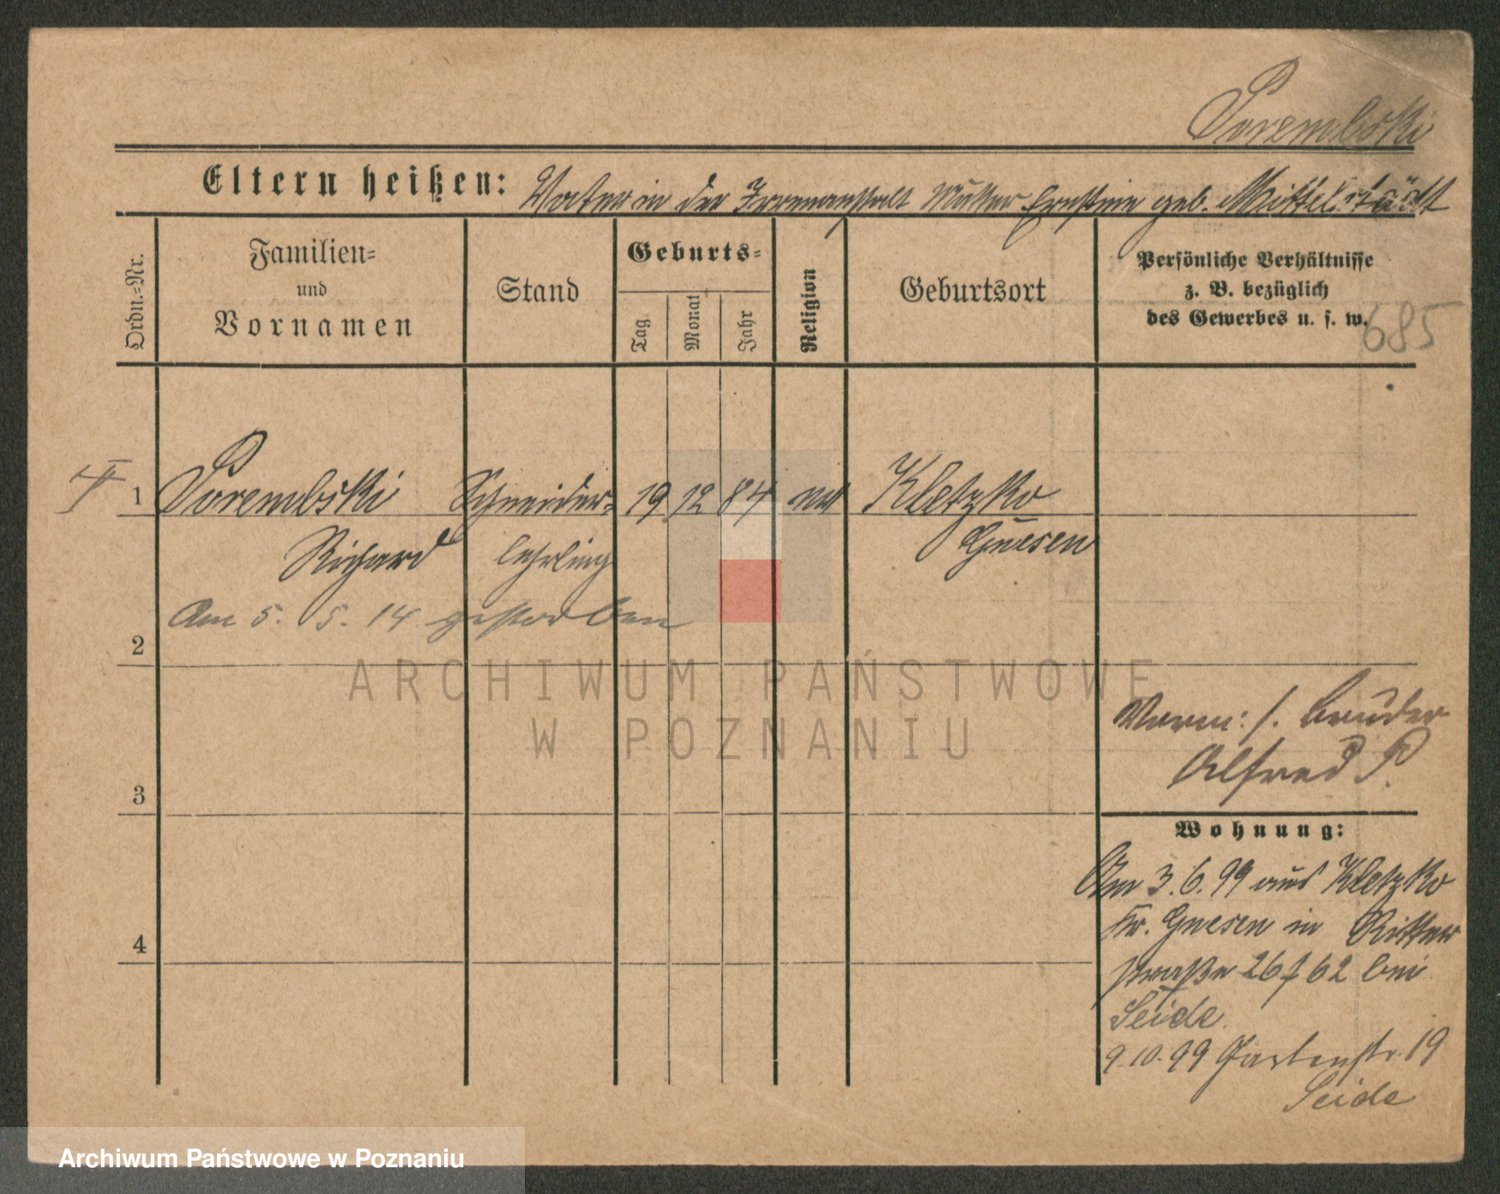 Porembski
Eltern heißen: Vater in der Irrenanstalt Mutter Ernstine geb. Mittelstädt
Ordn.-Nr.
Familien-
und
Vornamen
Stand
Geburts-
Tag
Monat
Jahr
Religion
Geburtsort
Persönliche Verhältnisse
z. B. bezüglich
des Gewerbes u. s. w.
685
1 Porembski Schneider- 19 12 84 Kletzko
Richard lehrling Gnesen
Am 5. 5. 14 gestorben
2
ARCHIWUM PAŃSTWOWE
W POZNANIU
Vorm: s. Bruder
Alfred P.
3
Wohnung:
Am 3.6.99 aus Kletzko
Kr. Gnesen in Ritter
4
straße 26/62 bei
Seide.
9.10.99 Gartenstr. 19
Seide
Archiwum Państwowe w Poznaniu